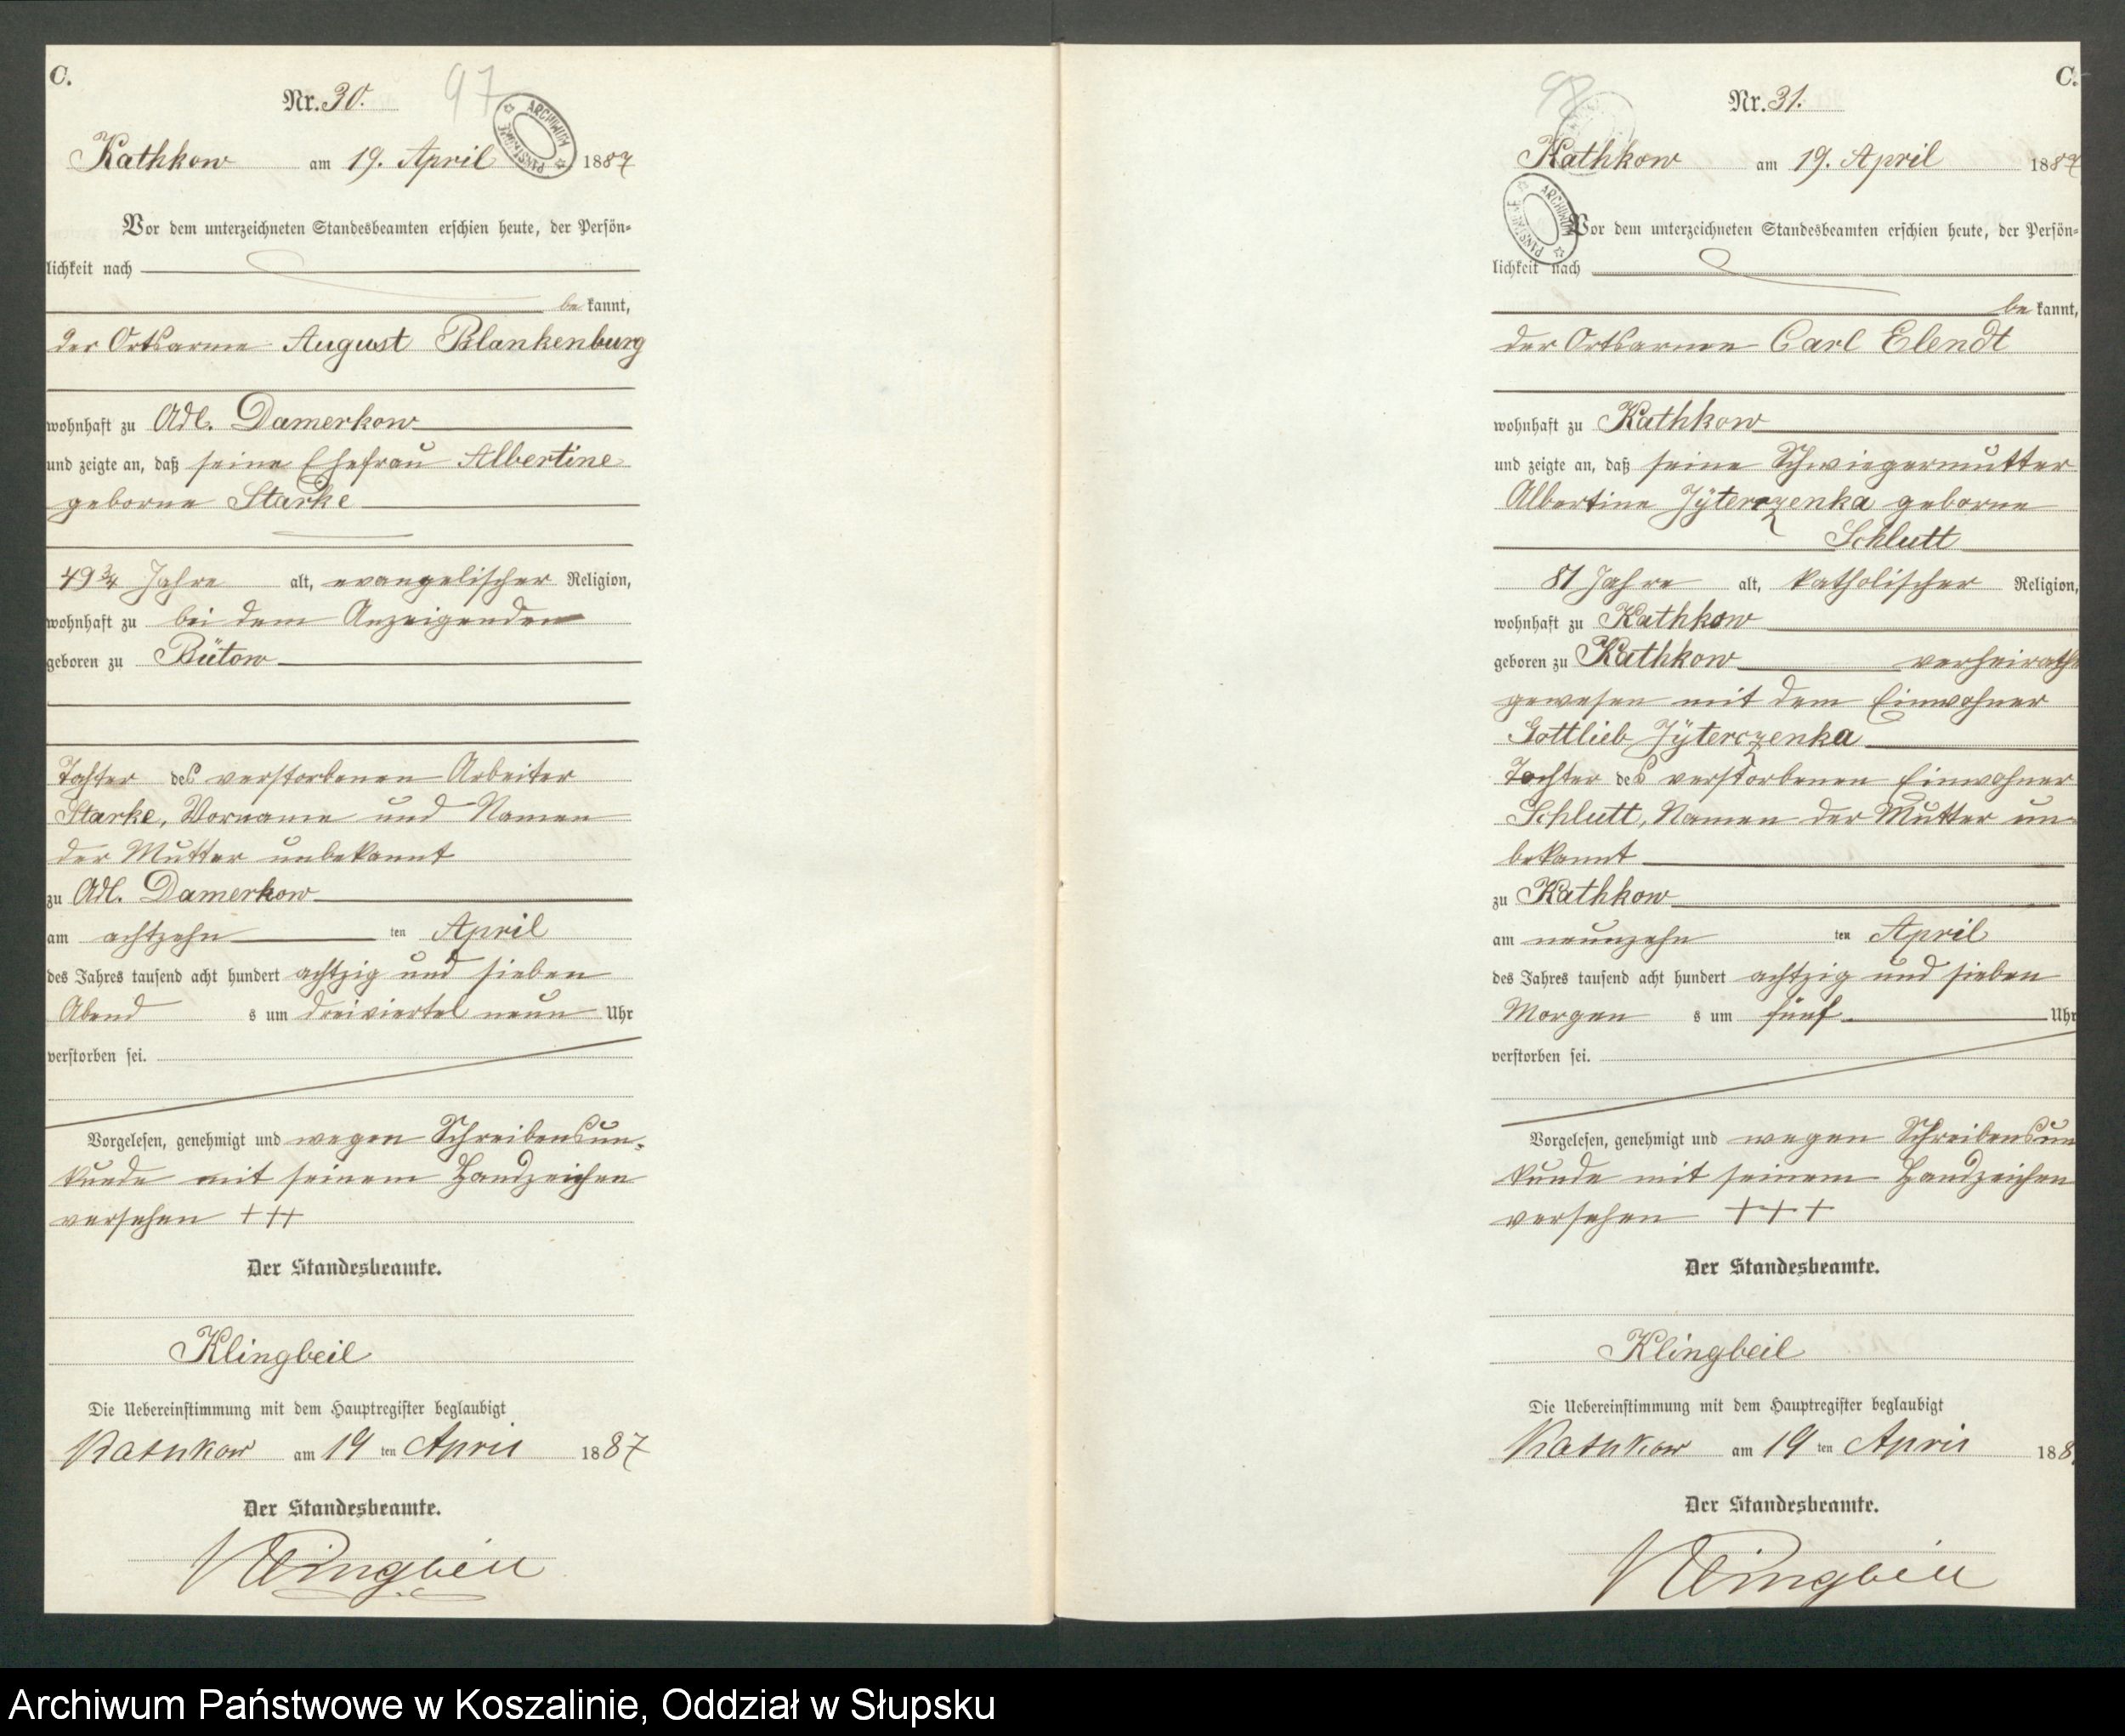 C.
Nr. 30.
97
ARCHIWUM PAŃSTWOWE
Kathkow am 19. April 1887
Vor dem unterzeichneten Standesbeamten erschien heute, der Persön-
lichkeit nach
bekannt,
der Ortsarme August Blankenburg
wohnhaft zu Adl. Damerkow
und zeigte an, daß seine Ehefrau Albertine
geborne Starke
49 3/4 Jahre alt, evangelischer Religion,
wohnhaft zu bei dem Anzeigenden
geboren zu Bütow
Tochter des verstorbenen Arbeiter
Starke, Vorname und Namen
der Mutter unbekannt
zu Adl. Damerkow
am achtzehn ten April
des Jahres tausend acht hundert achtzig und sieben
Abend s um dreiviertel neun Uhr
verstorben sei.
Vorgelesen, genehmigt und wegen Schreibensun-
kunde mit seinem Handzeichen
versehen +++
Der Standesbeamte.
Klingbeil
Die Uebereinstimmung mit dem Hauptregister beglaubigt
Kathkow am 19 ten April 1887
Der Standesbeamte.
Klingbeil
C.
Nr. 31.
98
Kathkow am 19. April 1887
ARCHIWUM PAŃSTWOWE
Vor dem unterzeichneten Standesbeamten erschien heute, der Persön-
lichkeit nach
bekannt,
der Ortsarme Carl Elendt
wohnhaft zu Kathkow
und zeigte an, daß seine Schwiegermutter
Albertine Jÿterczenka geborne
Schlutt
81 Jahre alt, katholischer Religion,
wohnhaft zu Kathkow
geboren zu Kathkow verheirathet
gewesen mit dem Einwohner
Gottlieb Jÿterczenka
Tochter des verstorbenen Einwohner
Schlutt, Namen der Mutter un-
bekannt
zu Kathkow
am neunzehn ten April
des Jahres tausend acht hundert achtzig und sieben
Morgen s um fünf Uhr
verstorben sei.
Vorgelesen, genehmigt und wegen Schreibensun
kunde mit seinem Handzeichen
versehen +++
Der Standesbeamte.
Klingbeil
Die Uebereinstimmung mit dem Hauptregister beglaubigt
Kathkow am 19 ten April 188
Der Standesbeamte.
Klingbeil
Archiwum Państwowe w Koszalinie, Oddział w Słupsku